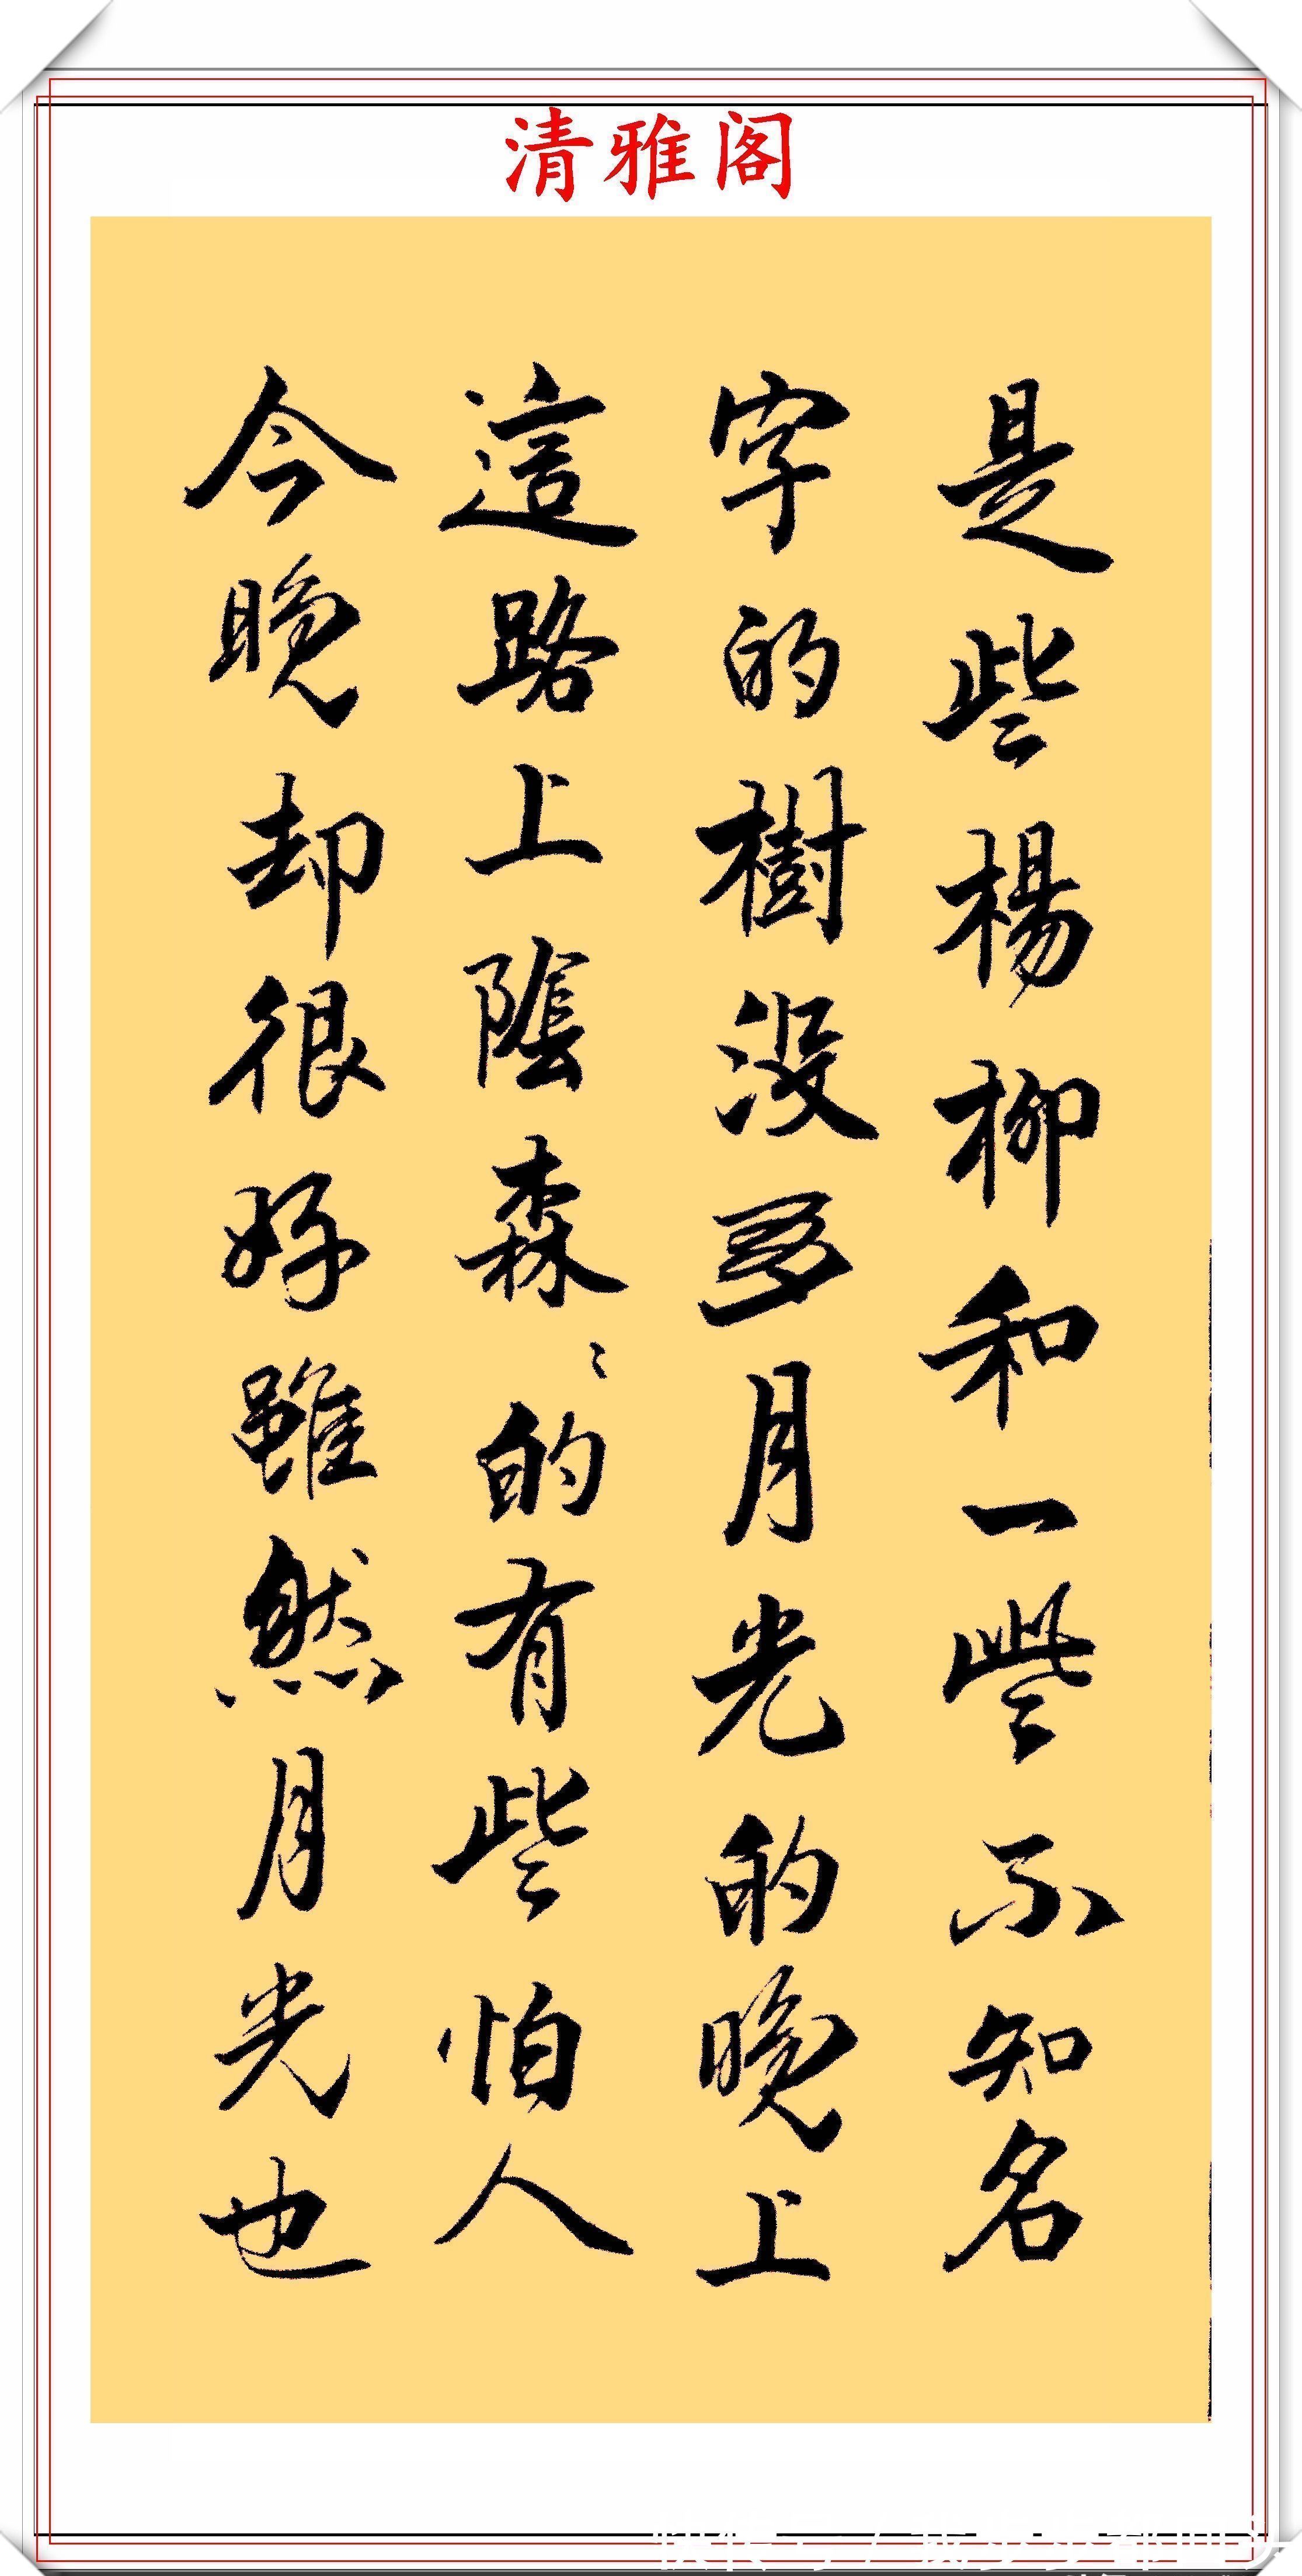 清雅阁
是些楊柳和一些不知名
字的樹没多月光的晚上
這路上陰森〻的有些怕人
今晚却很好雖然月光也